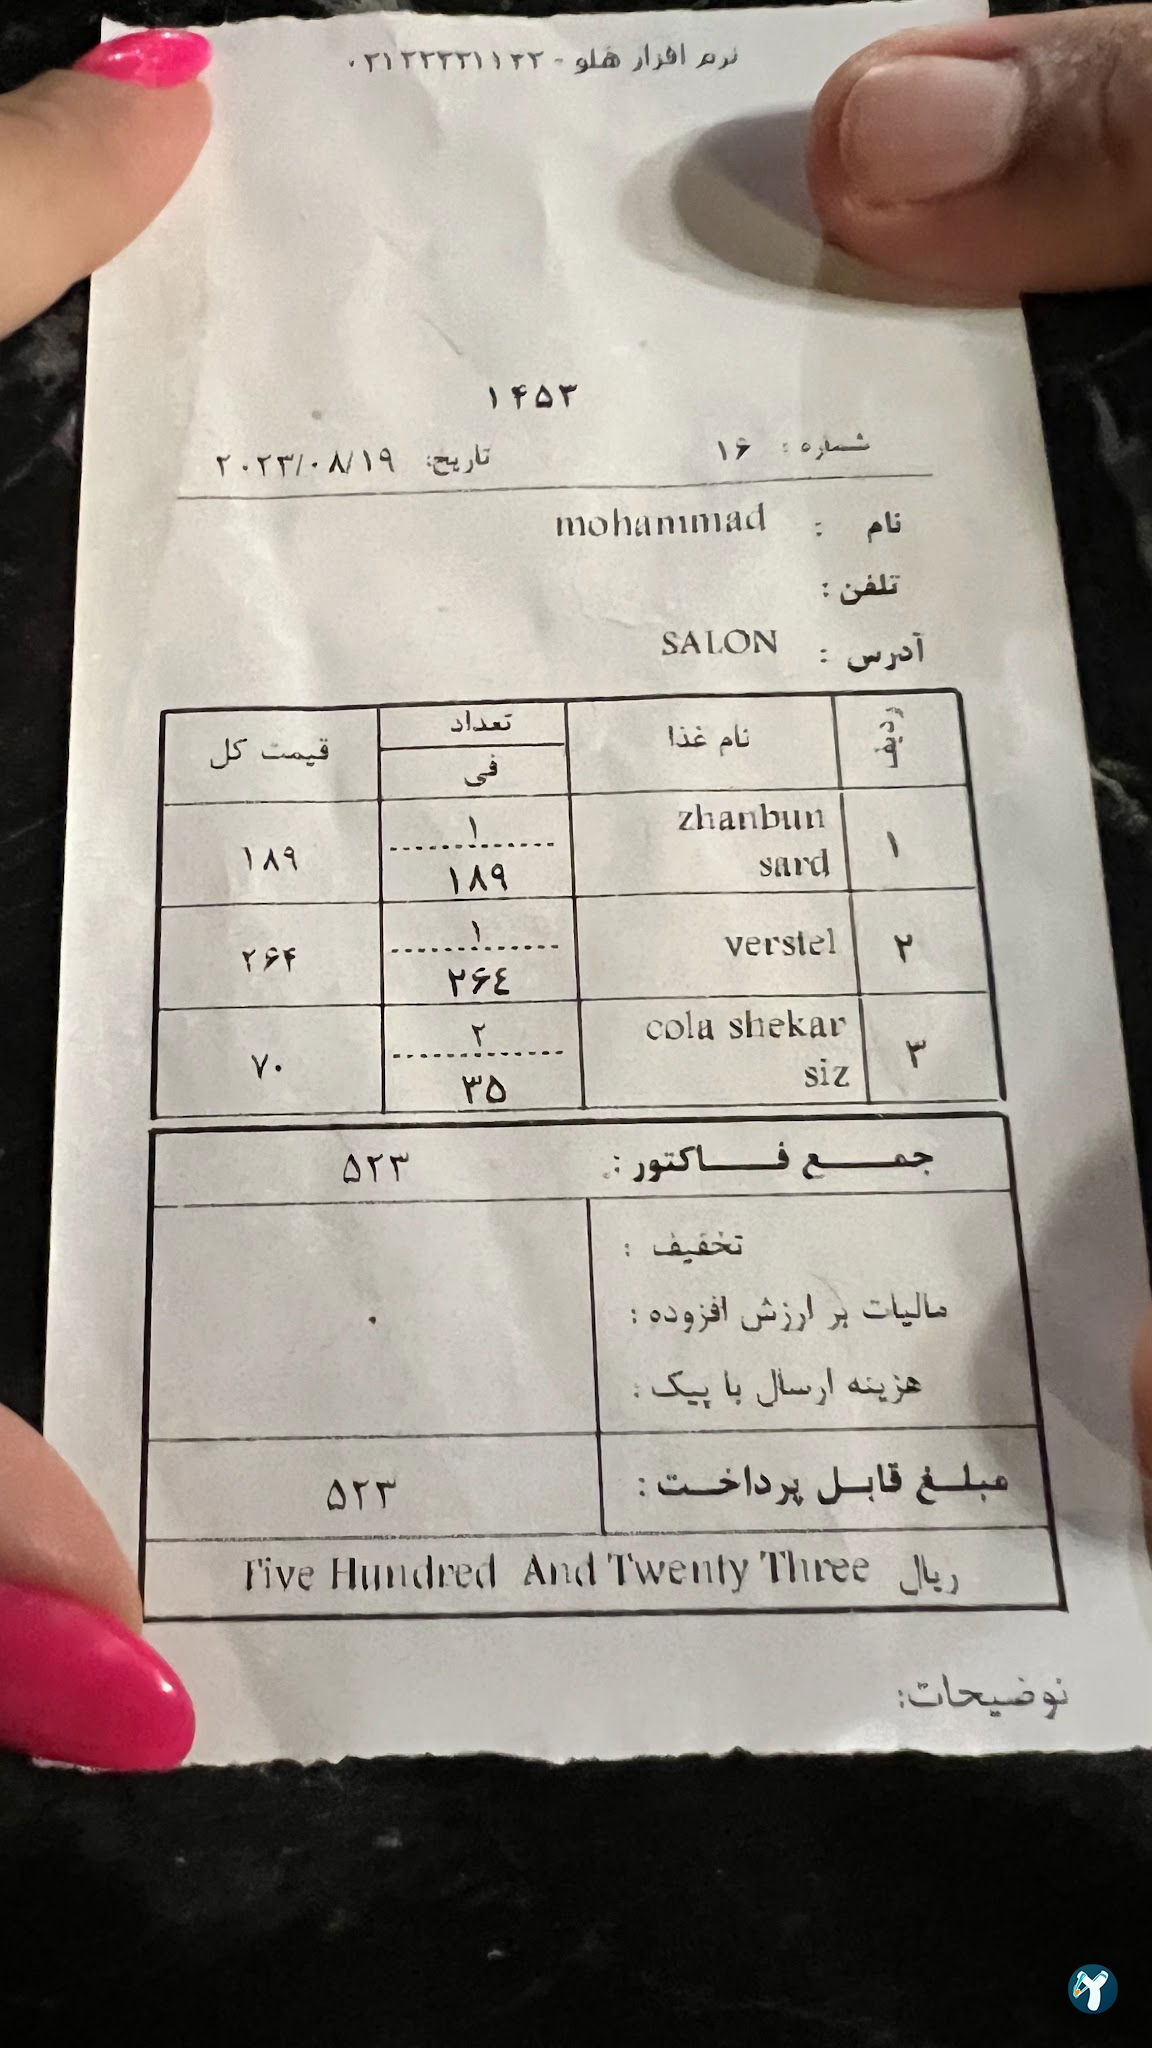 نرم افزار هلو - ۰۲۱۲۲۲۲۱۱۲۲
۱۴۵۳
شماره : ۱۶ تاریخ: ۲۰۲۳/۰۸/۱۹
نام : mohammad
تلفن :
آدرس : SALON
ردیف نام غذا تعداد فی قیمت کل
۱ zhanbun sard ۱ ۱۸۹ ۱۸۹
۲ verstel ۱ ۲۶٤ ۲۶۴
۳ cola shekar siz ۲ ۳۵ ۷۰
جمع فاکتور : ۵۲۳
تخفیف :
مالیات بر ارزش افزوده : ۰
هزینه ارسال با پیک :
مبلغ قابل پرداخت : ۵۲۳
Five Hundred And Twenty Three ریال
توضیحات: